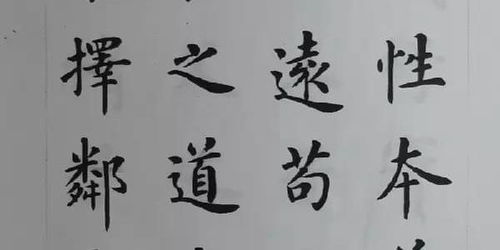 性本
遠苟
之道
擇鄰